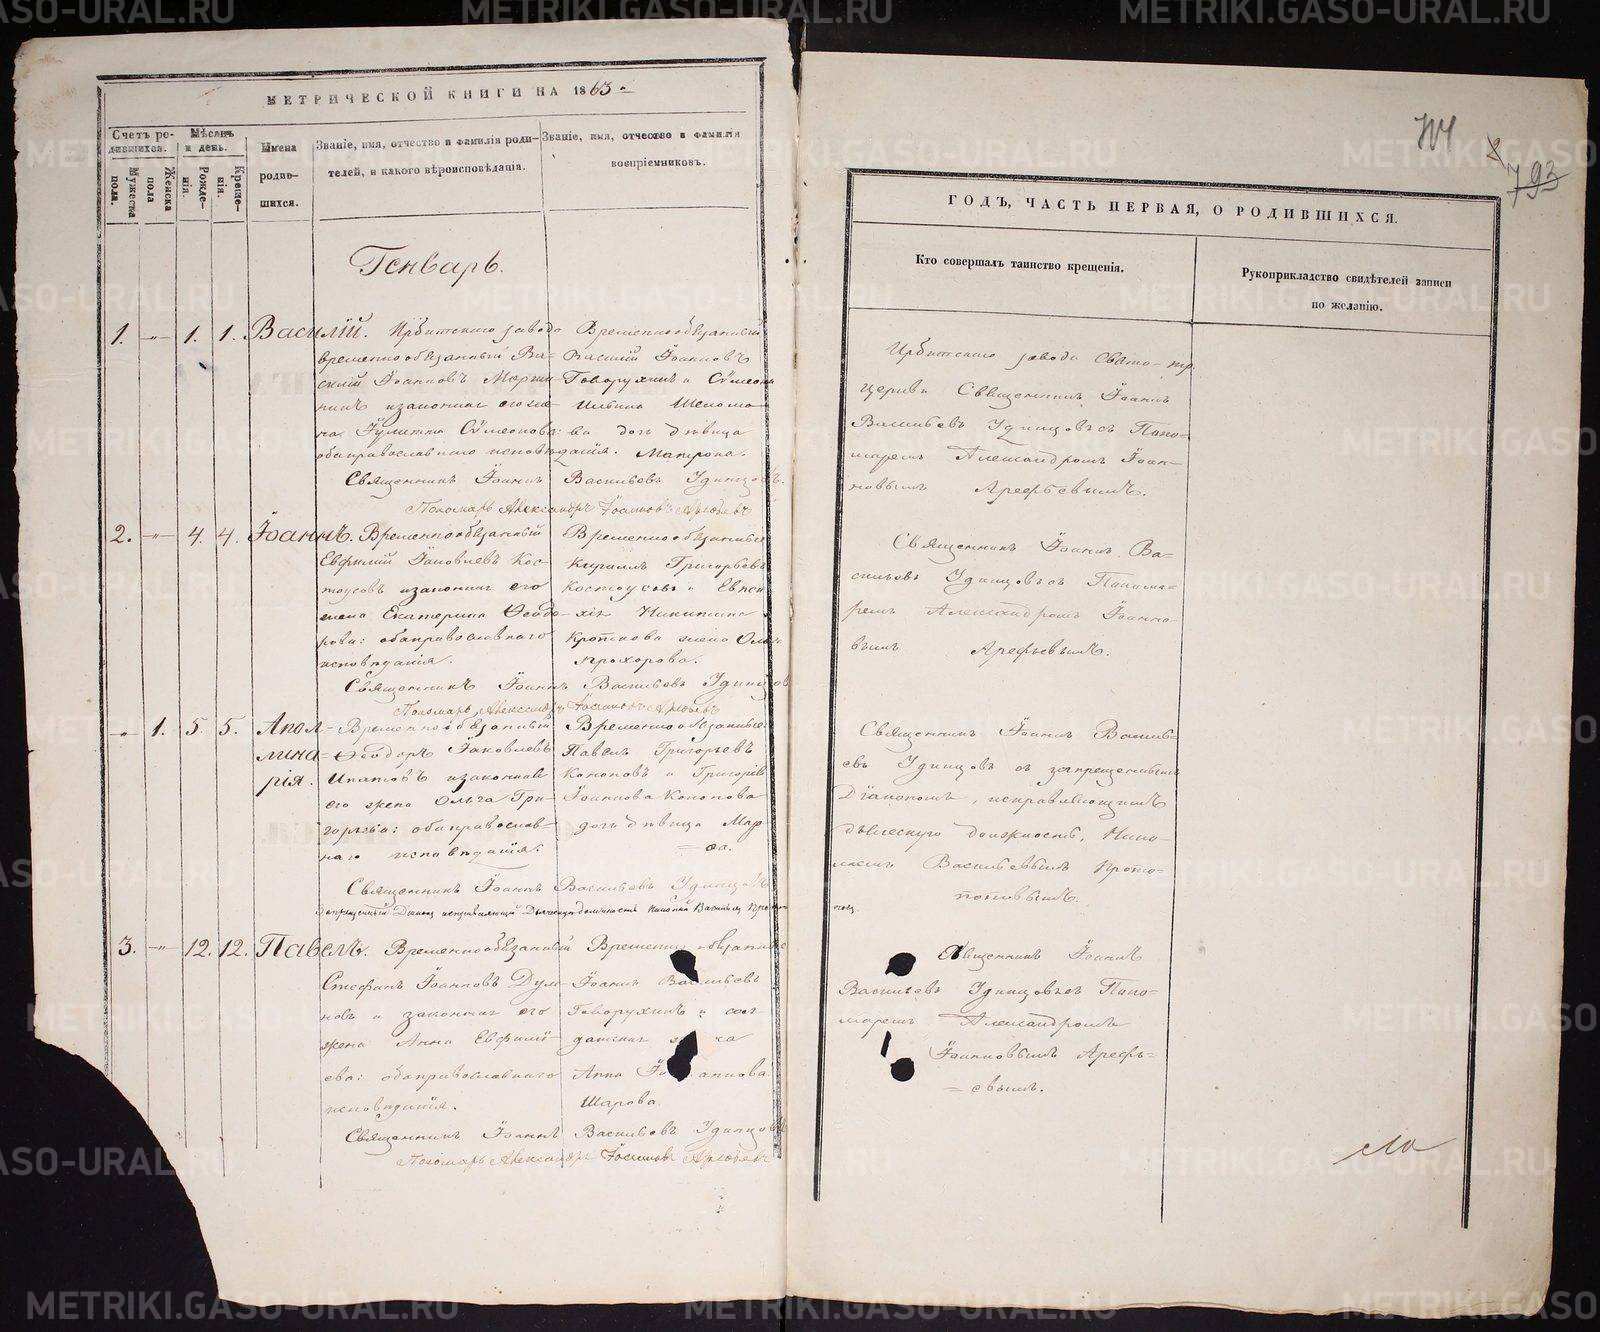 МЕТРИЧЕСКОЙ КНИГИ НА 1863
Счетъ ро-
дившихся.
Мѣсяцъ
и день.
Мужеска
пола.
Женска
пола
Рожде-
нія.
Креще-
нія.
Имена
родив-
шихся.
Званіе, имя, отчество и фамилія роди-
телей, и какого вѣроисповѣданія.
Званіе, имя, отчество и фамилія
воспріемниковъ.
Генварь.
1. -"- 1. 1. Василій.
Ирбитскаго завода
временнообязанный Ва-
силій Іоанновъ
законная его же-
на Іулитта Сѵмеонова:
оба православнаго исповѣданія.
Временнообязанный
Василій Іоанновъ
Говорухинъ и Сѵмеона
Ильина Шелома-
ва дочь дѣвица
Матрона.
Священникъ Іоаннъ Васильевъ Удинцовъ.
Пономарь Александръ Іоанновъ Арефьевъ
2. -"- 4. 4. Іоаннъ.
Временнообязанный
Евфимій Іаковлевъ Кос-
тоусовъ и законная его
жена Екатерина Ѳеодо-
рова: оба православнаго
исповѣданія.
Временнообязанные
Кириллъ Григорьевъ
Костоусовъ и
Никитина
Кроткова жена Ольга
Прохорова.
Священникъ Іоаннъ Васильевъ Удинцов
Пономарь Александръ Іоанновъ Арефьевъ
-"- 1. 5. 5. Апол-
лина-
рія.
Временнообязанный
Ѳеодоръ Іаковлевъ
Ипатовъ и законная
его жена Ольга Гри-
горьева: оба православ-
наго исповѣданія.
Временнообязанные:
Павелъ Григорьевъ
Кононовъ и Григорія
Іоаннова Кононова
дочь дѣвица Мар-
ѳа.
Священникъ Іоаннъ Васильевъ Удинцовъ
Запрещенный Діаконъ исправляющій Дьяческую должность Николай Васильевъ Протопоповъ
3. -"- 12. 12. Павелъ.
Временнообязанный
Стефанъ Іоанновъ Дуль-
новъ и законная его
жена Анна Евфимі-
ева: оба православнаго
исповѣданія.
Временно обязанные
Іоаннъ Васильевъ
Говорухинъ и сол-
датская
Анна Іоаннова
Шарова.
Священникъ Іоаннъ Васильевъ Удинцовъ
Пономарь Александръ Іоанновъ Арефьевъ
793
ГОДЪ, ЧАСТЬ ПЕРВАЯ, О РОДИВШИХСЯ.
Кто совершалъ таинство крещенія.
Рукоприкладство свидѣтелей записи
по желанію.
Ирбитскаго завода Свято-тр.
церкви Священникъ Іоаннъ
Васильевъ Удинцовъ съ Поно-
маремъ Александромъ Іоан-
новымъ Арефьевымъ.
Священникъ Іоаннъ Ва-
сильевъ Удинцовъ съ Понома-
ремъ Александромъ Іоанно-
вымъ Арефьевымъ.
Священникъ Іоаннъ Василь-
евъ Удинцовъ съ запрещеннымъ
Діакономъ, исправляющимъ
дьяческую должность, Нико-
лаемъ Васильевымъ Прото-
поповымъ.
Священникъ Іоаннъ
Васильевъ Удинцовъ съ Поно-
маремъ Александромъ
Іоанновымъ Арефь-
евымъ.
METRIKI.GASO-URAL.RU